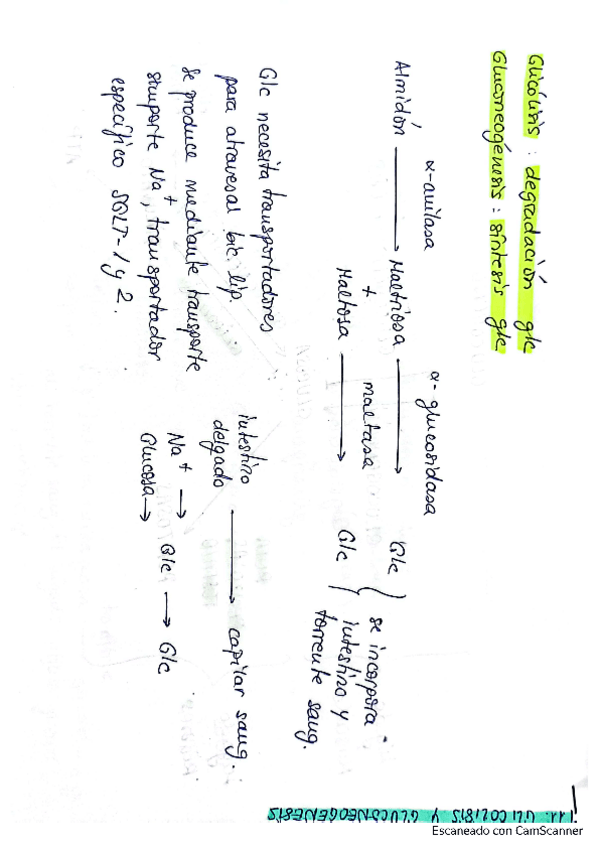 1.1.: GLICOLISIS Y GLUCONEOGENESIS
Glicólisis : degradación glc
Gluconeogénesis : síntesis glc
α-amilasa α-glucosidasa
Almidón → Maltriosa → Glc
+ maltasa
Maltosa → Glc
se incorpora
intestino y
torrente sang.
Glc necesita transportadores
para atravesar bic. lip.
Se produce mediante transporte
simporte Na+, transportador
específico SGLT-1 y 2.
intestino
delgado → capilar sang.
Na+ →
Glucosa → Glc → Glc
Escaneado con CamScanner